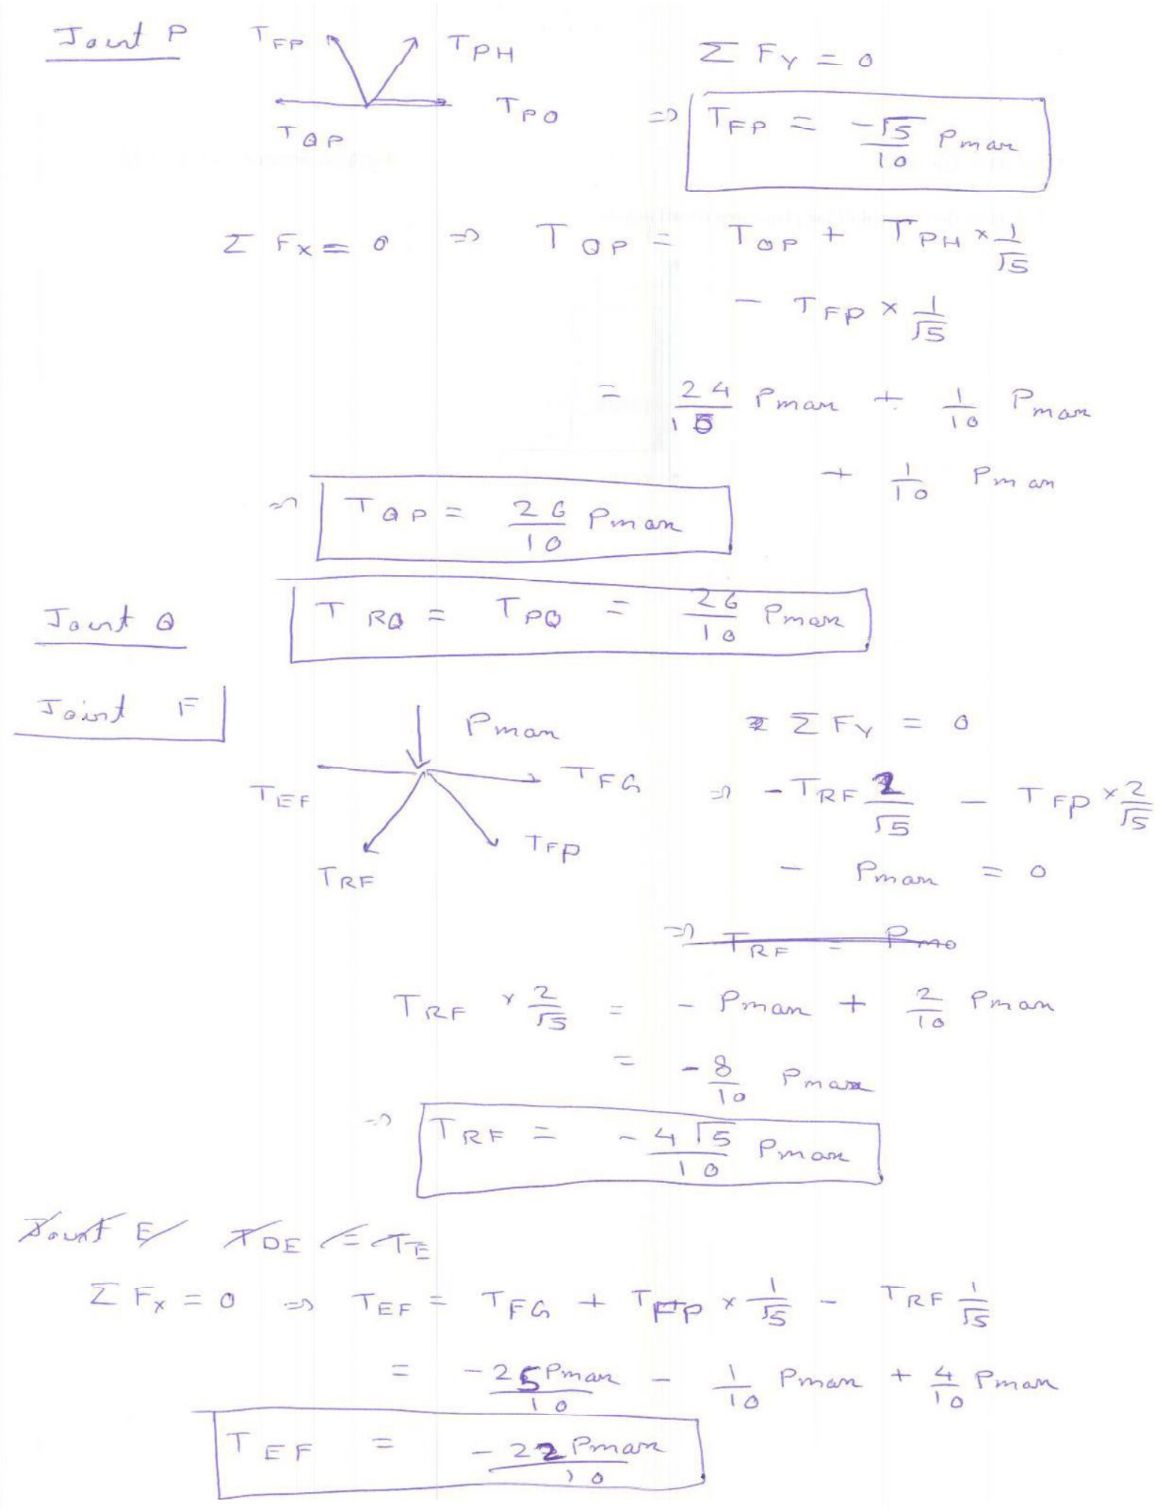 Joint P T_FP T_PH Σ F_Y = 0
T_QP T_PO ⇒ T_FP = -√5/10 Pmax
Σ F_X = 0 ⇒ T_QP = T_OP + T_PH × 1/√5
- T_FP × 1/√5
= 24/10 Pmax + 1/10 Pmax
+ 1/10 Pmax
⇒ T_QP = 26/10 Pmax
Joint Q T_RQ = T_PQ = 26/10 Pmax
Joint F Pmax Σ F_Y = 0
T_EF T_FG ⇒ - T_RF 2/√5 - T_FP × 2/√5
T_RF T_FP - Pmax = 0
T_RF × 2/√5 = - Pmax + 2/10 Pmax
= -8/10 Pmax
⇒ T_RF = -4√5/10 Pmax
Joint E T_DE = T_E
Σ F_X = 0 ⇒ T_EF = T_FG + T_FP × 1/√5 - T_RF 1/√5
= -25 Pmax/10 - 1/10 Pmax + 4/10 Pmax
T_EF = -22 Pmax/10